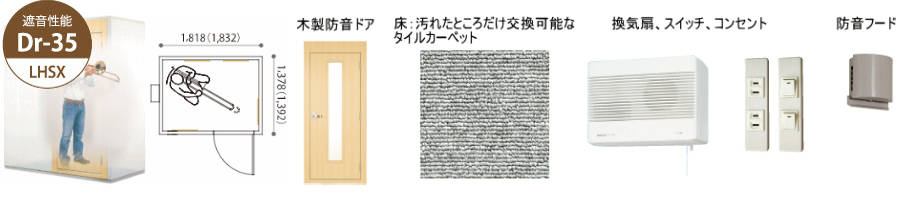 遮音性能
Dr-35
LHSX
1,818(1,832)
1,378(1,392)
木製防音ドア
床：汚れたところだけ交換可能な
タイルカーペット
換気扇、スイッチ、コンセント
防音フード